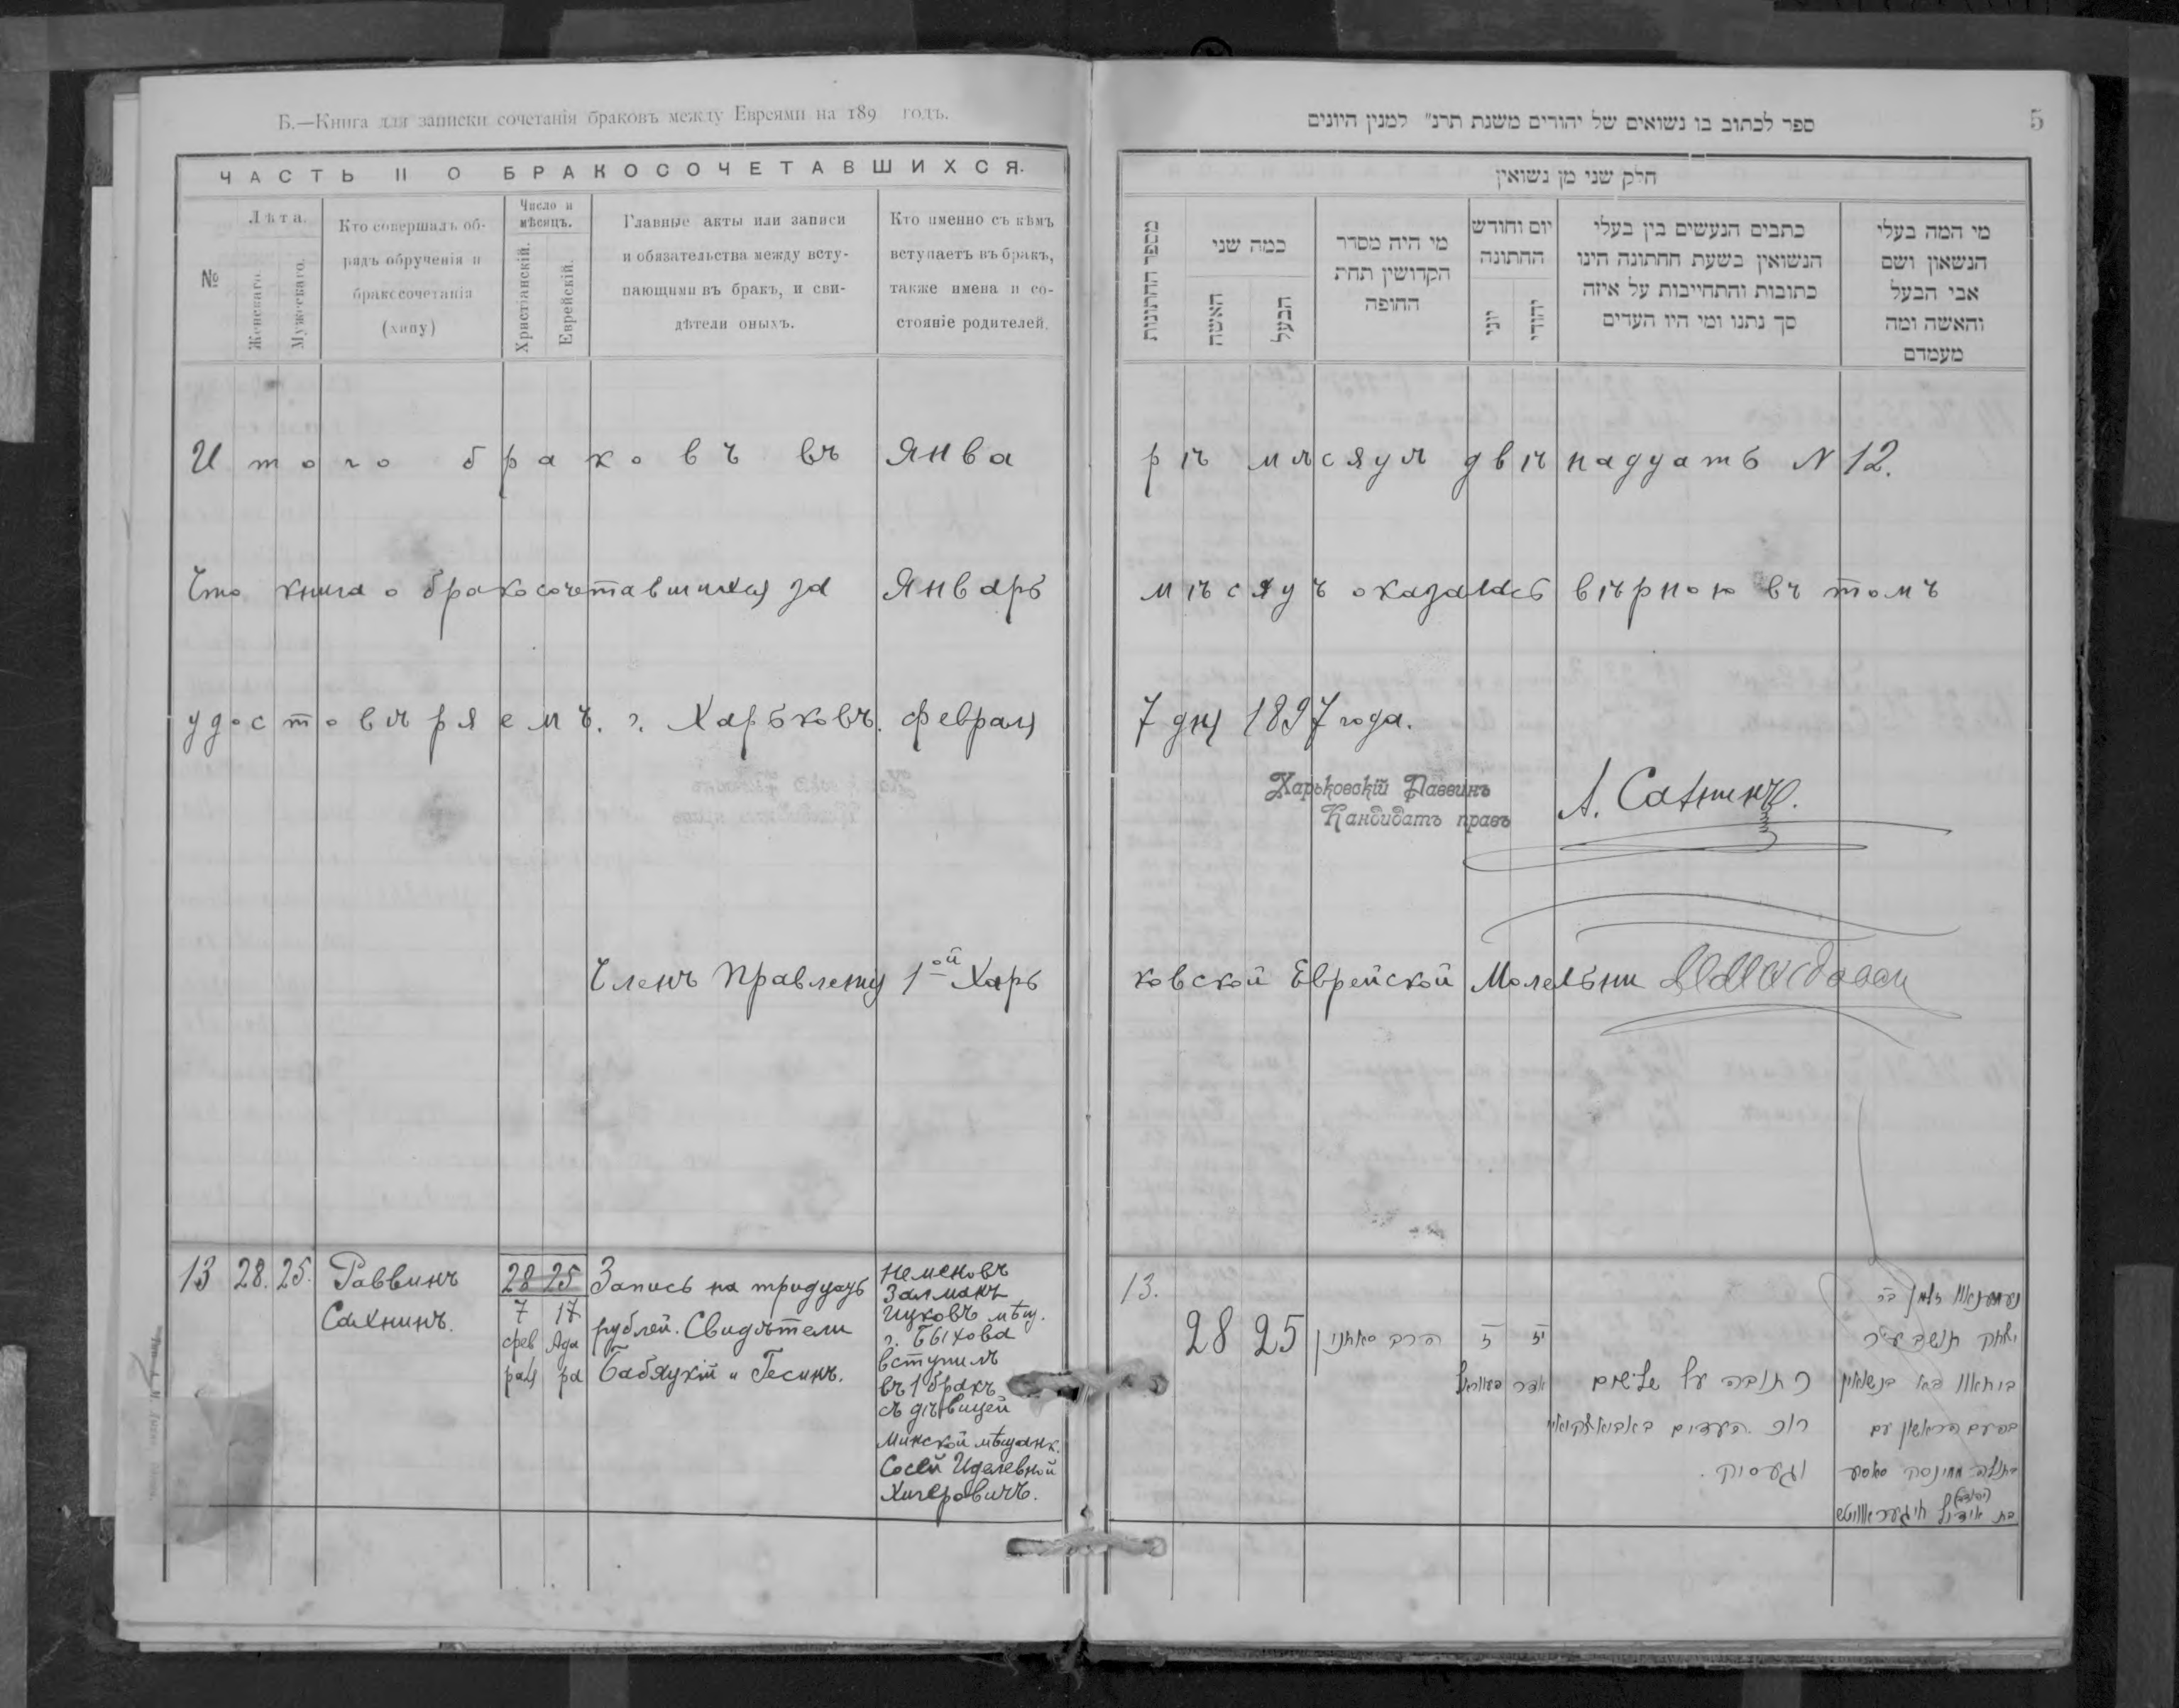 Б.—Книга для записки сочетанія браковъ между Евреями на 189 годъ.
ЧАСТЬ II О БРАКОСОЧЕТАВШИХСЯ.
№
Лѣта.
Женскаго.
Мужескаго.
Кто совершалъ об-
рядъ обрученія и
бракосочетанія
(хипу)
Число и
мѣсяцъ.
Христіанскій.
Еврейскій.
Главные акты или записи
и обязательства между всту-
пающими въ бракъ, и сви-
дѣтели оныхъ.
Кто именно съ кѣмъ
вступаетъ въ бракъ,
также имена и со-
стояніе родителей.
ספר לכתוב בו נשואים של יהודים משנת תרנ״ למנין היונים
5
חלק שני מן נשואין
מספר החתונות
כמה שני
האשה
הבעל
מי היה מסדר
הקדושין תחת
החופה
יום וחודש
החתונה
יוני
יהודי
כתבים הנעשים בין בעלי
הנשואין בשעת החתונה היינו
כתובות והתחייבות על איזה
סך נתנו ומי היו העדים
מי המה בעלי
הנשואין ושם
אבי הבעל
והאשה ומה
מעמדם
Итого браковъ въ Январѣ мѣсяцѣ двѣнадцать N 12.
Что книга о бракосочетавшихся за Январь мѣсяцъ оказалась вѣрною въ томъ
удостовѣряемъ. г. Харьковъ. Февраля 7 дня 1897 года.
Харьковскій Раввинъ
Кандидатъ правъ
А. Сахнинъ.
Членъ Правленія 1ой Харьковской Еврейской Молельни
13 28. 25.
Раввинъ
Сахнинъ.
28 25
7 17
фев Ада
раля ра
Запись на тридцать
рублей. Свидѣтели
Бабяцкій и Гесинъ.
Неменовъ
Залманъ
Ицковъ мѣщ.
г. Быхова
вступилъ
въ 1 бракъ
съ дѣвицей
Минской мѣщанк.
Сосей Иделевной
Хигеровичъ.
13.
28 25
הרב סאחנין
ז
יז
אדר
כתובה על שלשים
רוכ העדים
וגעסין.
זלמן בר
יצחק תושב עיר
ביחאוו בא בנשואין
בפעם הראשון עם
בת